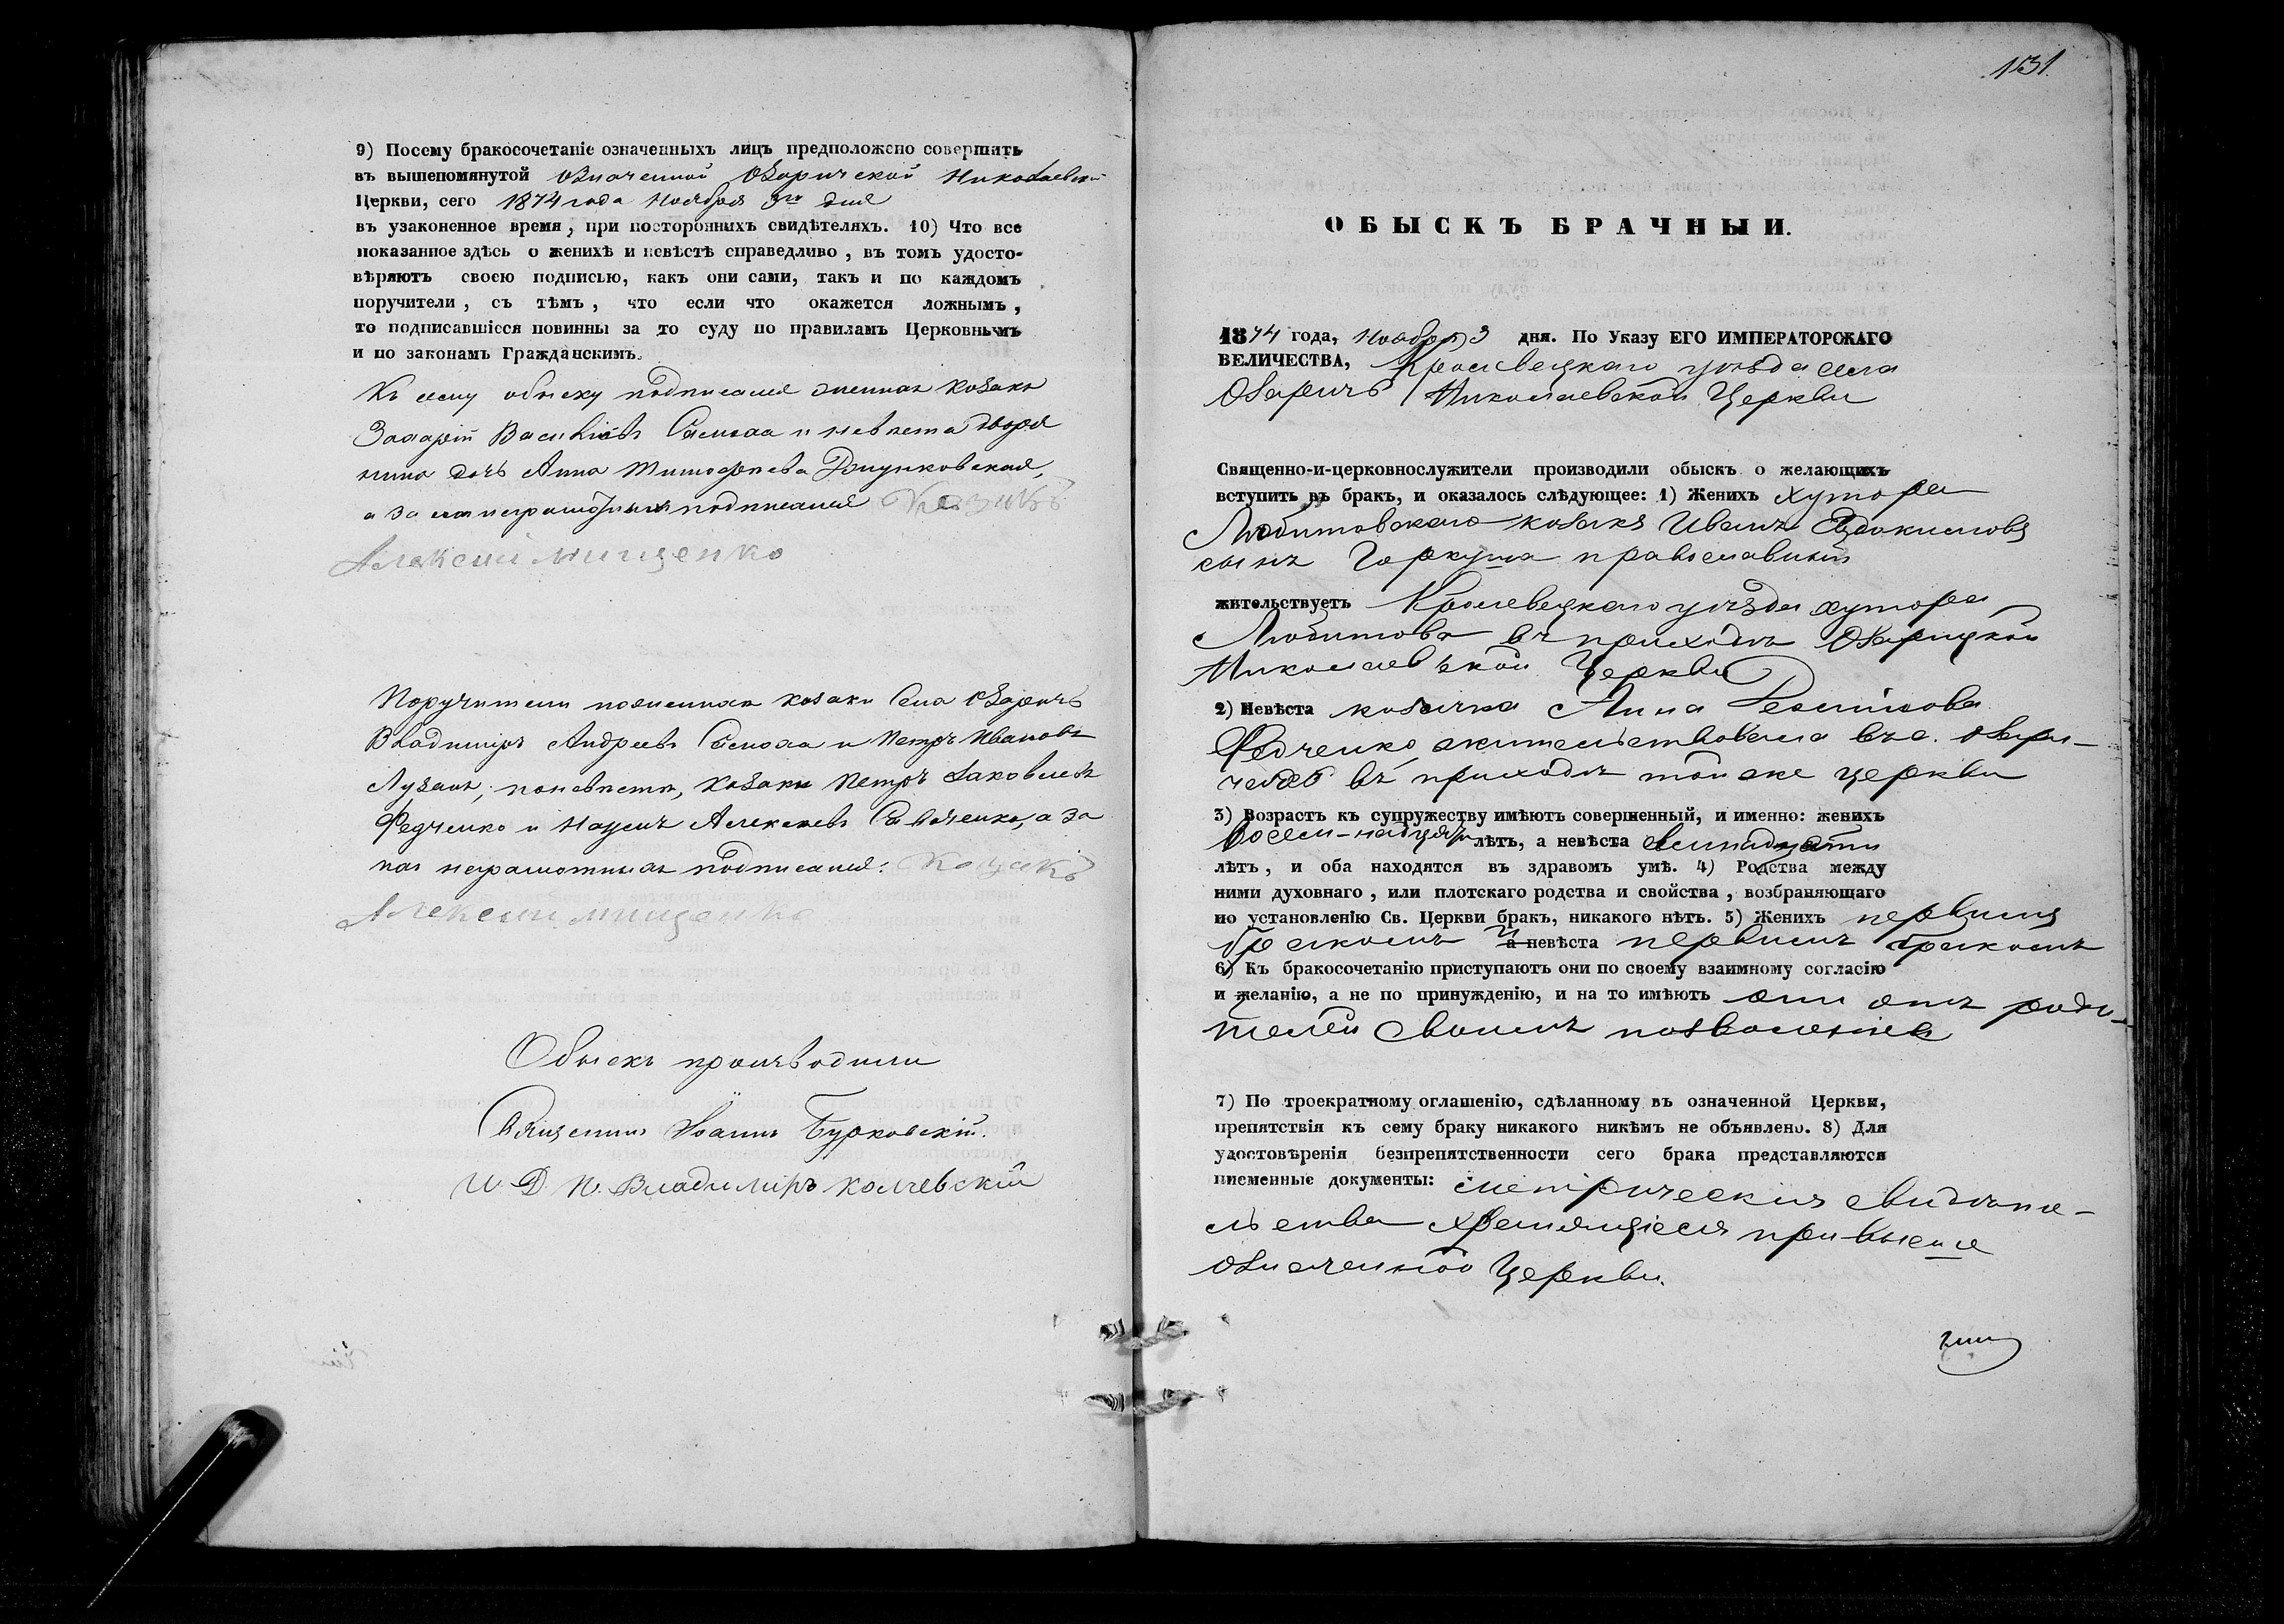 9) Посему бракосочетаніе означенныхъ лицъ предположено совершить
въ вышепомянутой означенной Озаричской Николаевской
Церкви, сего 1874 года Ноября 3го дня
въ узаконенное время, при постороннихъ свидѣтеляхъ. 10) Что все
показанное здѣсь о женихѣ и невѣстѣ справедливо, въ томъ удосто-
вѣряютъ своею подписью, какъ они сами, такъ и по каждомъ
поручители, съ тѣмъ, что если что окажется ложнымъ,
то подписавшіеся повинны за то суду по правиламъ Церковнымъ
и по законамъ Гражданскимъ.
Къ сему обыску подписался женихъ козакъ
Захарій Васильевъ и невѣста дворя
нина дочь Анна Тимофѣева
а за неграмотныхъ подписался Козакъ
Алексей мищенко
Поручители по женихѣ козаки Села Озаричъ
Владиміръ Андреевъ и Петръ Ивановъ
Лузанъ; по невѣстѣ, козаки Петръ Яковлевъ
Федченко и Наумъ Алексѣевъ Савченко, а за
нихъ неграмотныхъ подписался: Козакъ
Алексей мищенко
Обыскъ производили
Священникъ Іоаннъ Бурковскій.
И. Д. П. Владиміръ
131.
ОБЫСКЪ БРАЧНЫЙ.
1874 года, Ноября 3 дня. По Указу ЕГО ИМПЕРАТОРСКАГО
ВЕЛИЧЕСТВА, Кролевецкаго уѣзда села
Озаричъ Николаевской Церкви
Священно-и-церковнослужители производили обыскъ о желающихъ
вступить въ бракъ, и оказалось слѣдующее: 1) Женихъ хутора
Любитовскаго козакъ Иванъ Евдокимовъ
сынъ Гаркуша православный
жительствуетъ Кролевецкаго уѣзда хутора
Любитова въ приходѣ Озарицкой
Николаевской Церкви
2) Невѣста козачка Анна
Федченко, жительствовала въ с. Озари-
чахъ въ приходѣ той же церкви
3) Возрастъ къ супружеству имѣютъ совершенный, и именно: женихъ
восем-надцять лѣтъ, а невѣста
лѣтъ, и оба находятся въ здравомъ умѣ. 4) Родства между
ними духовнаго, или плотскаго родства и свойства, возбраняющаго
по установленію Св. Церкви бракъ, никакого нѣтъ. 5) Женихъ первымъ
бракомъ и а невѣста первымъ бракомъ
6) Къ бракосочетанію приступаютъ они по своему взаимному согласію
и желанію, а не по принужденію, и на то имѣютъ они отъ роди-
телей своихъ позволеніе
7) По троекратному оглашенію, сдѣланному въ означенной Церкви,
препятствія къ сему браку никакого никѣмъ не объявлено. 8) Для
удостовѣренія безпрепятственности сего брака представляются
писменные документы: метрическія свидѣте-
льства хранящіеся при выше
означенной Церкви.